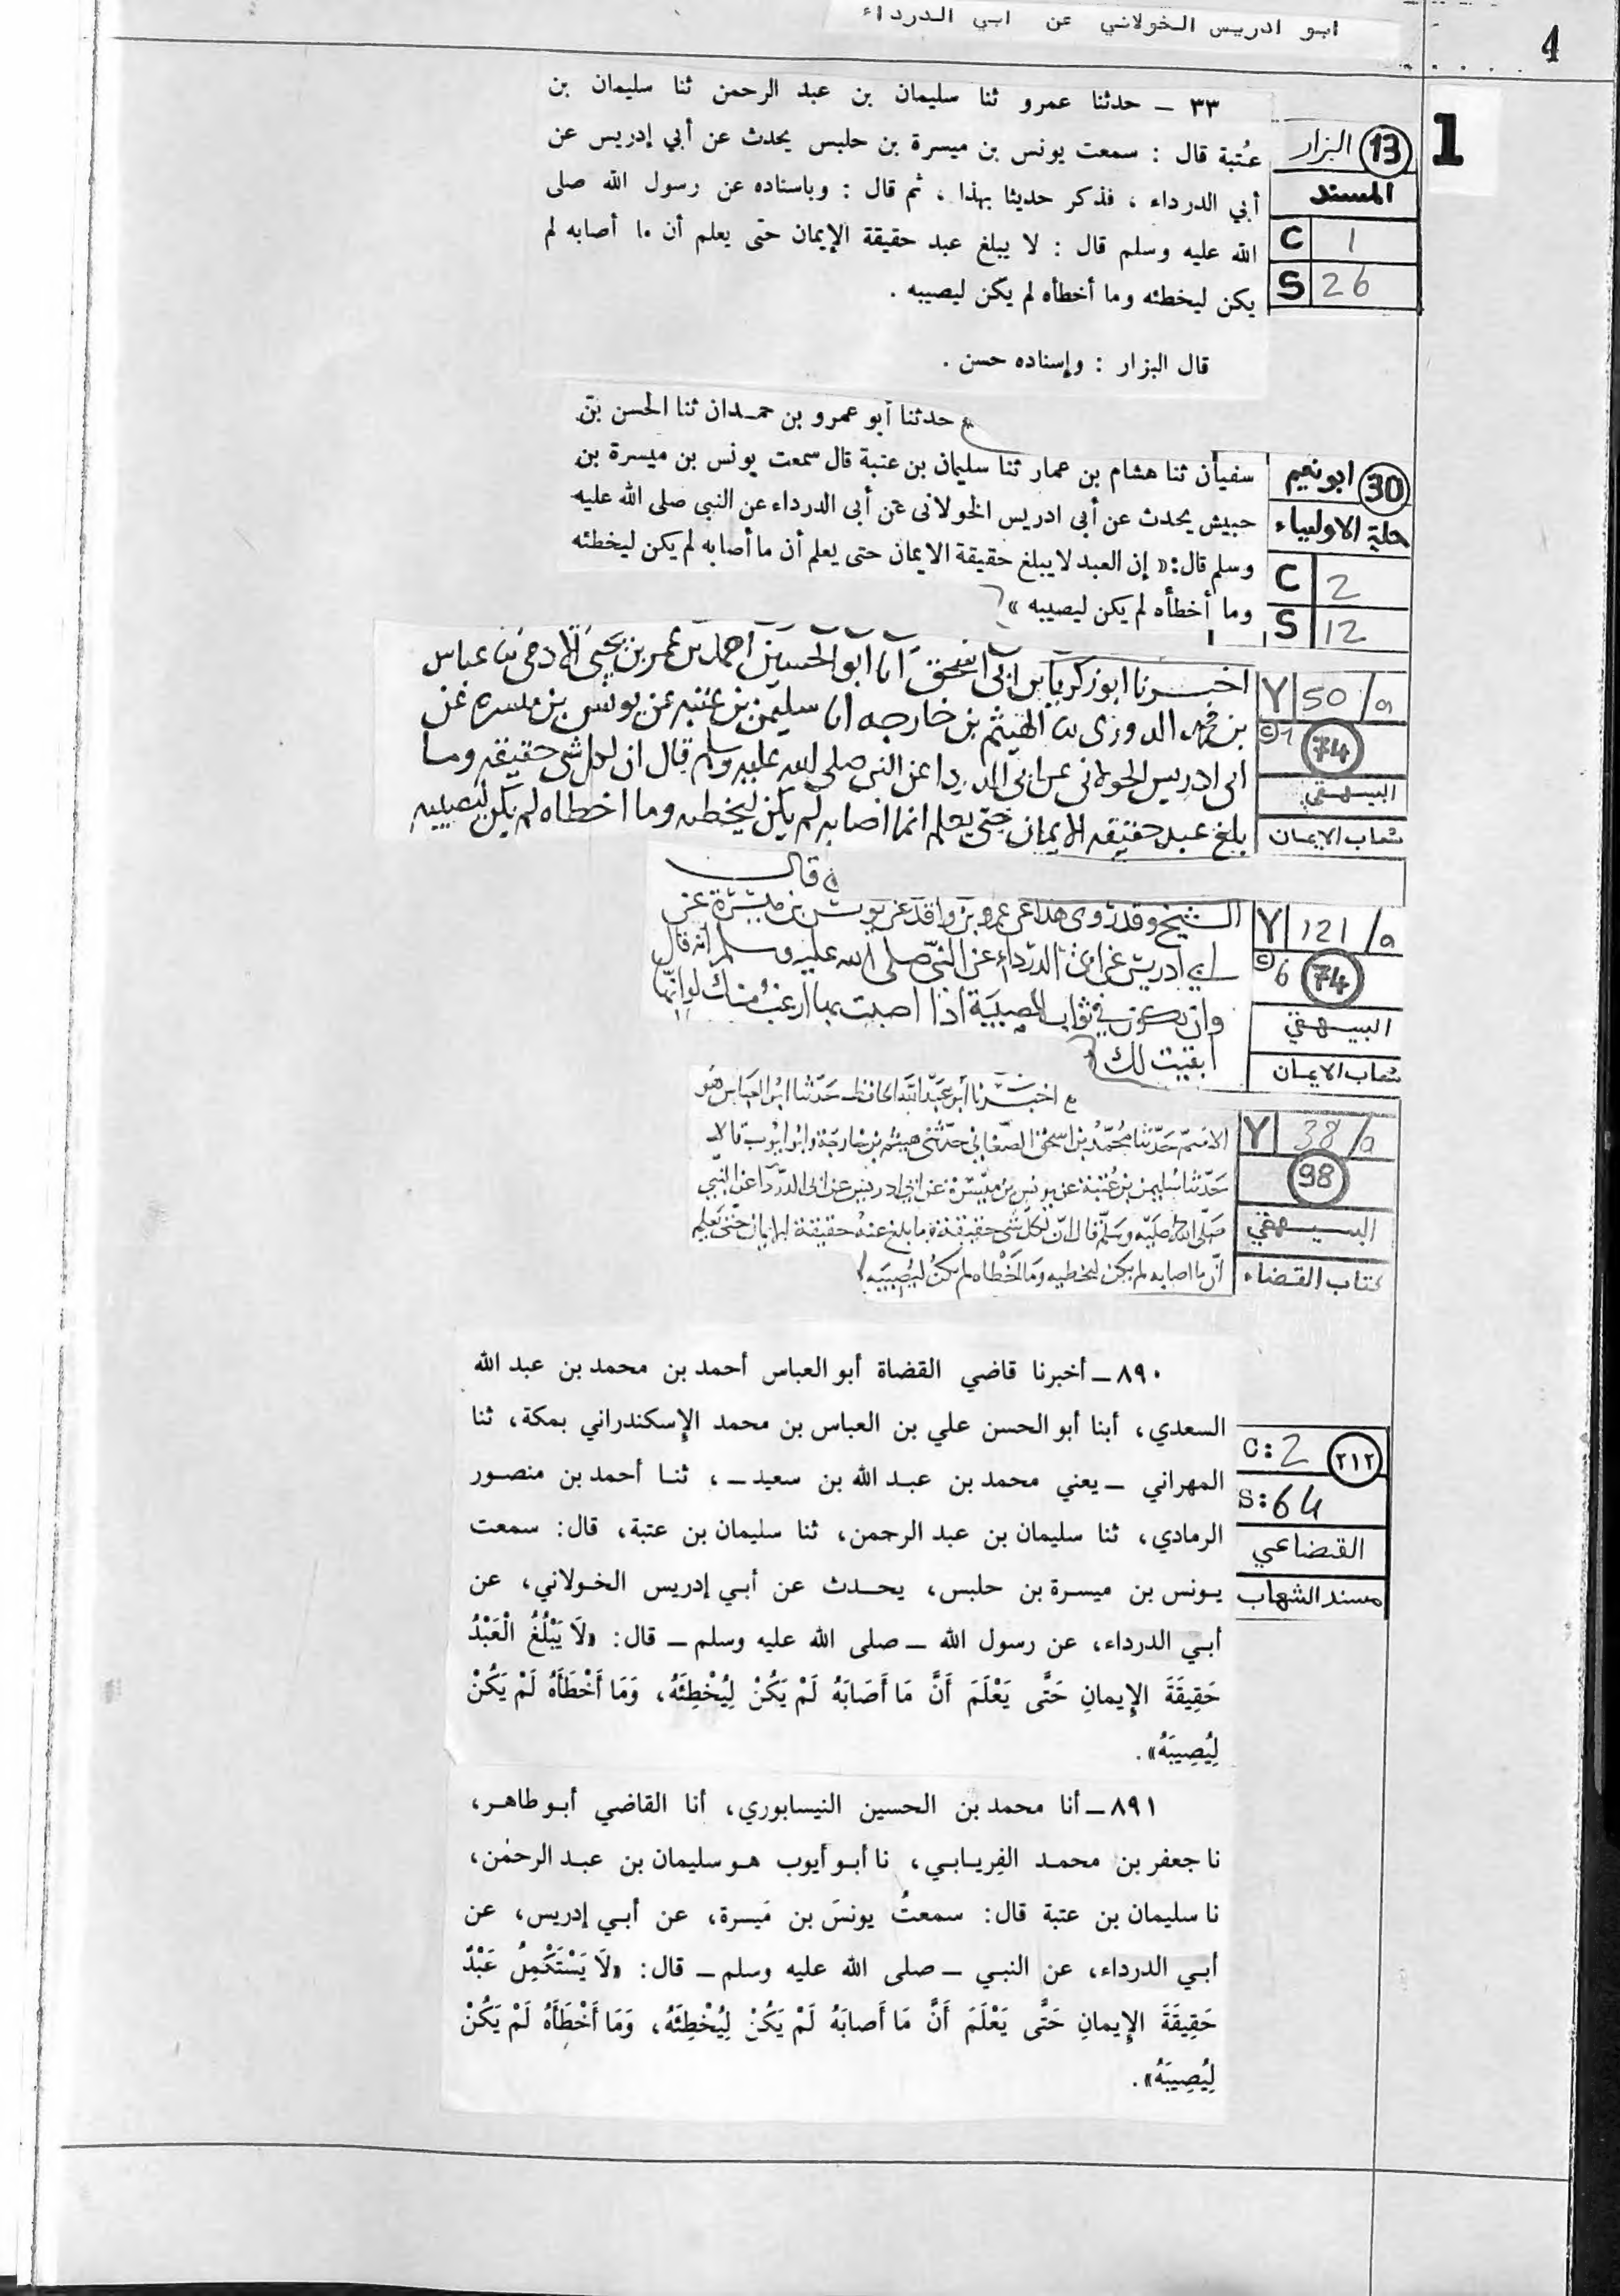 ابو ادريس الخولاني عن ابي الدرداء
4
1
٣٣ - حدثنا عمرو ثنا سليمان بن عبد الرحمن ثنا سليمان بن
عُتبة قال : سمعت يونس بن ميسرة بن حلبس يحدث عن أبي إدريس عن
أبي الدرداء ، فذكر حديثا بهذا ، ثم قال : وباسناده عن رسول الله صلى
الله عليه وسلم قال : لا يبلغ عبد حقيقة الإيمان حتى يعلم أن ما أصابه لم
يكن ليخطئه وما أخطأه لم يكن ليصيبه .
قال البزار : وإسناده حسن .
13 البزار
المسند
C 1
S 26
حدثنا أبو عمرو بن حمدان ثنا الحسن بن
سفيان ثنا هشام بن عمار ثنا سليمان بن عتبة قال سمعت يونس بن ميسرة بن
حبيش يحدث عن أبى ادريس الخولانى عن أبى الدرداء عن النبى صلى الله عليه
وسلم قال: « إن العبد لا يبلغ حقيقة الايمان حتى يعلم أن ما أصابه لم يكن ليخطئه
وما أخطأه لم يكن ليصيبه »
30 ابو نعيم
حلية الاولياء
C 2
S 12
اخبرنا ابو زكريا بن ابى اسحق انا ابو الحسين احمد بن عمر بن يحيى الادمى ثنا عباس
بن محمد الدورى ثنا الهيثم بن خارجه انا سليمن بن عتبه عن يونس بن ميسره عن
ابى ادريس الخولانى عن ابى الدردا عن النبى صلى الله عليه وسلم قال ان لكل شى حقيقه وما
بلغ عبد حقيقه الايمان حتى يعلم انما اصابه لم يكن ليخطه وما اخطاه لم يكن ليصيبه
Y 50/a
©1 74
البيهقي
شعاب الايمان
قال
الشيخ وقد روى هذا عن عمرو بن واقد عن يونس بن ميسرة عن
ابي ادريس عن ابي الدرداء عن النبي صلى الله عليه وسلم انه قال
وان تكون في ثواب المصيبة اذا اصبت بها ارغب منك لو انها
ابقيت لك
Y 121/a
©6 74
البيهقي
شعاب الايمان
اخبرنا أبو عبد الله الحافظ حدثنا ابو العباس هو
الاصم حدثنا محمد بن اسحق الصغاني حدثنى هيثم بن خارجة وابو ايوب قالا
حدثنا سليمن بن عتبة عن يونس بن ميسرة عن ابى ادريس عن ابى الدردآ عن النبي
صلى الله عليه وسلم قال ان لكل شى حقيقة وما بلغ عبد حقيقة الايمان حتى يعلم
ان ما اصابه لم يكن ليخطيه وما اخطاه لم يكن ليصيبه
Y 38/a
98
البيهقي
كتاب القضاء
٨٩٠ ـ أخبرنا قاضي القضاة أبو العباس أحمد بن محمد بن عبد الله
السعدي، أبنا أبو الحسن علي بن العباس بن محمد الإسكندراني بمكة، ثنا
المهراني ـ يعني محمد بن عبد الله بن سعيد ـ ، ثنا أحمد بن منصور
الرمادي، ثنا سليمان بن عبد الرحمن، ثنا سليمان بن عتبة، قال: سمعت
يونس بن ميسرة بن حلبس، يحدث عن أبي إدريس الخولاني، عن
أبي الدرداء، عن رسول الله ـ صلى الله عليه وسلم ـ قال: «لَا يَبْلُغُ الْعَبْدُ
حَقِيقَةَ الإِيمانِ حَتَّى يَعْلَمَ أَنَّ مَا أَصَابَهُ لَمْ يَكُنْ لِيُخْطِئَهُ، وَمَا أَخْطَأَهُ لَمْ يَكُنْ
لِيُصِيبَهُ».
C:2 ٢١٢
S:64
القضاعي
مسند الشهاب
٨٩١ ـ أنا محمد بن الحسين النيسابوري، أنا القاضي أبو طاهر،
نا جعفر بن محمد الفِريابي، نا أبو أيوب هو سليمان بن عبد الرحمٰن،
نا سليمان بن عتبة قال: سمعتُ يونسَ بن مَيسرة، عن أبي إدريس، عن
أبي الدرداء، عن النبي ـ صلى الله عليه وسلم ـ قال: «لَا يَسْتَكْمِلُ عَبْدٌ
حَقِيقَةَ الإِيمانِ حَتَّى يَعْلَمَ أَنَّ مَا أَصابَهُ لَمْ يَكُنْ لِيُخْطِئَهُ، وَمَا أَخْطَأَهُ لَمْ يَكُنْ
لِيُصِيبَهُ».